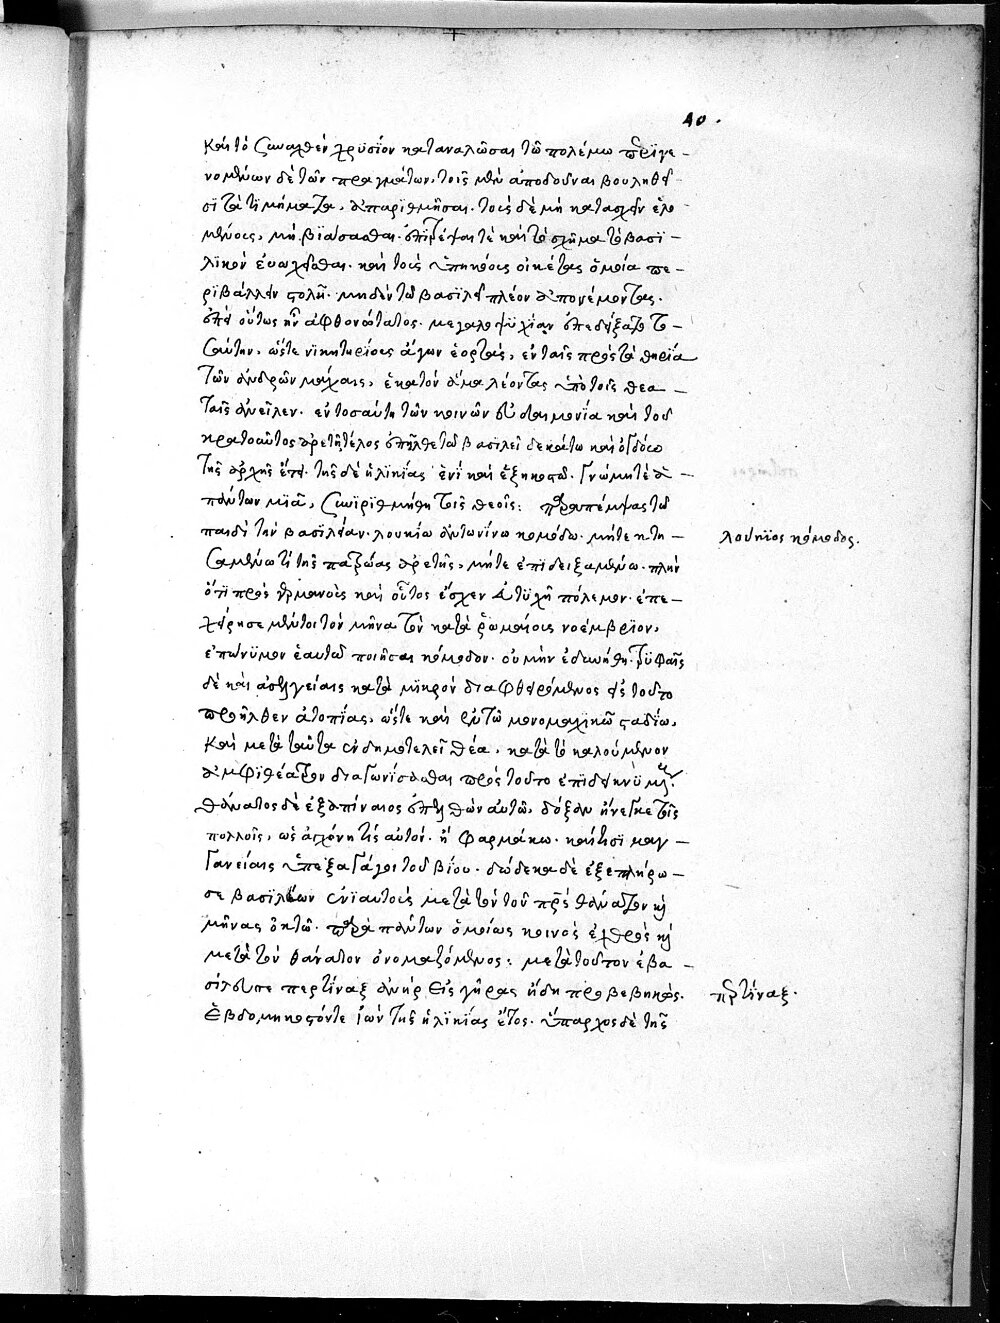 40.
καὶ τὸ συναχθὲν χρυσίον καταναλῶσαι τῶ πολέμω περιγε-
νομένων δὲ τῶν πραγμάτων, τοῖς μὲν ἀποδοῦναι βουληθεῖ-
σι τὰ τιμήματα, ἀπαριθμῆσαι. τοῖς δὲ μὴ κατασχεῖν ἑλο
μένοις, μὴ βιάσασθαι. ἐπιτρέψαι τὲ καὶ τὸ σχῆμα τὸ βασι-
λικὸν εὐωχεῖσθαι. καὶ τοὺς ὑπηκόοις οἰκέτας ὅμοία πε-
ριβάλλειν στολῆ. μηδὲν τῶ βασιλεῖ πλέον ἀπονέμοντας.
ἐπεὶ οὕτως ἦν ἀφθονώτατος. μεγαλοψυχίαν ἐπεδείξατο το-
σαύτην, ὥστε νικητηρίους ἄγων ἑορτὰς, ἐν ταῖς πρὸς τὰ θηρία
τῶν ἀνδρῶν μάχαις, ἑκατὸν ἅμα λέοντας ὑπὸ τοῖς θεα-
ταῖς ἀνεῖλεν. ἐν τοσαύτη τῶν κοινῶν εὐδαιμονία καὶ τοῦ
κρατοῦντος ἀρετῆ τέλος ἐπῆλθε τῶ βασιλεῖ δεκάτω καὶ ὀγδόω
τῆς ἀρχῆς ἔτει. τῆς δὲ ἡλικίας ἑνὶ καὶ ἑξηκοστῶ. γνώμη τὲ ἁ-
πάντων μιᾶ, συνηριθμήθη τοῖς θεοῖς: παραπέμψας τῶ
παιδὶ τὴν βασιλείαν. λουκίω ἀντωνίνω κομόδω. μήτε κτη-
σαμένω τὶ τῆς πατρώας ἀρετῆς, μήτε ἐπιδειξαμένω. πλὴν
ὅτι πρὸς γερμανοὺς καὶ οὗτος ἔσχεν εὐτυχῆ πόλεμον. ἐπε-
χείρησε μέντοι τὸν μῆνα τὸν κατὰ ῥωμαίοις νοέμβριον,
ἐπώνυμον ἑαυτῶ ποιῆσαι κόμοδον. οὐ μὴν ἐδυνήθη. τρυφαῖς
δὲ καὶ ἀσελγείαις κατὰ μικρὸν διαφθειρόμενος εἰς τοῦτο
προῆλθεν ἀτοπίας, ὥστε καὶ ἐν τῶ μονομαχικῶ σταδίω,
καὶ μετὰ ταῦτα ἐν δημοτελεῖ θέα, κατὰ τὸ καλούμενον
ἀμφιθέατρον διαγωνίσασθαι πρὸς τοῦτο ἐπιδεικνύμενος.
θάνατος δὲ ἐξαπίναιος ἐπελθὼν αὐτῶ, δόξαν ἤνεγκε τοῖς
πολλοῖς, ὡς ἀγχόνη τίς αὐτὸν. ἢ φαρμάκω. καί τισι μαγ-
γανείαις ὑπεξαγάγοι τοῦ βίου. δώδεκα δὲ ἐξεπλήρω-
σε βασιλεύων ἐνιαυτοὺς μετὰ τὸν τοῦ πατρὸς θάνατον καὶ
μῆνας ὀκτῶ. παρὰ πάντων ὁμοίως κοινὸς ἐχθρὸς καὶ
μετὰ τὸν θάνατον ὀνομαζόμενος: μετὰ τοῦτον ἐβα-
σίλευσε περτίναξ ἀνὴρ εἰς γῆρας ἤδη προβεβηκὼς.
ἑβδομηκοστόν τε ἰὼν τῆς ἡλικίας ἔτος. ὕπαρχος δὲ τῆς
λούκιος κόμοδος.
περτίναξ.